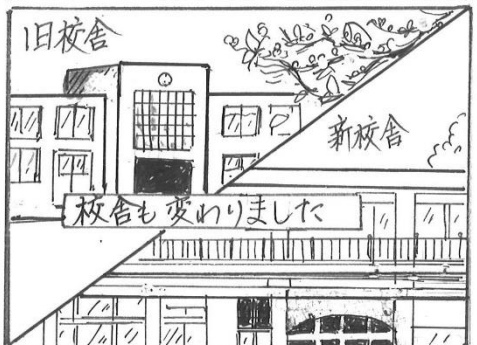 旧校舎
新校舎
校舎も変わりました